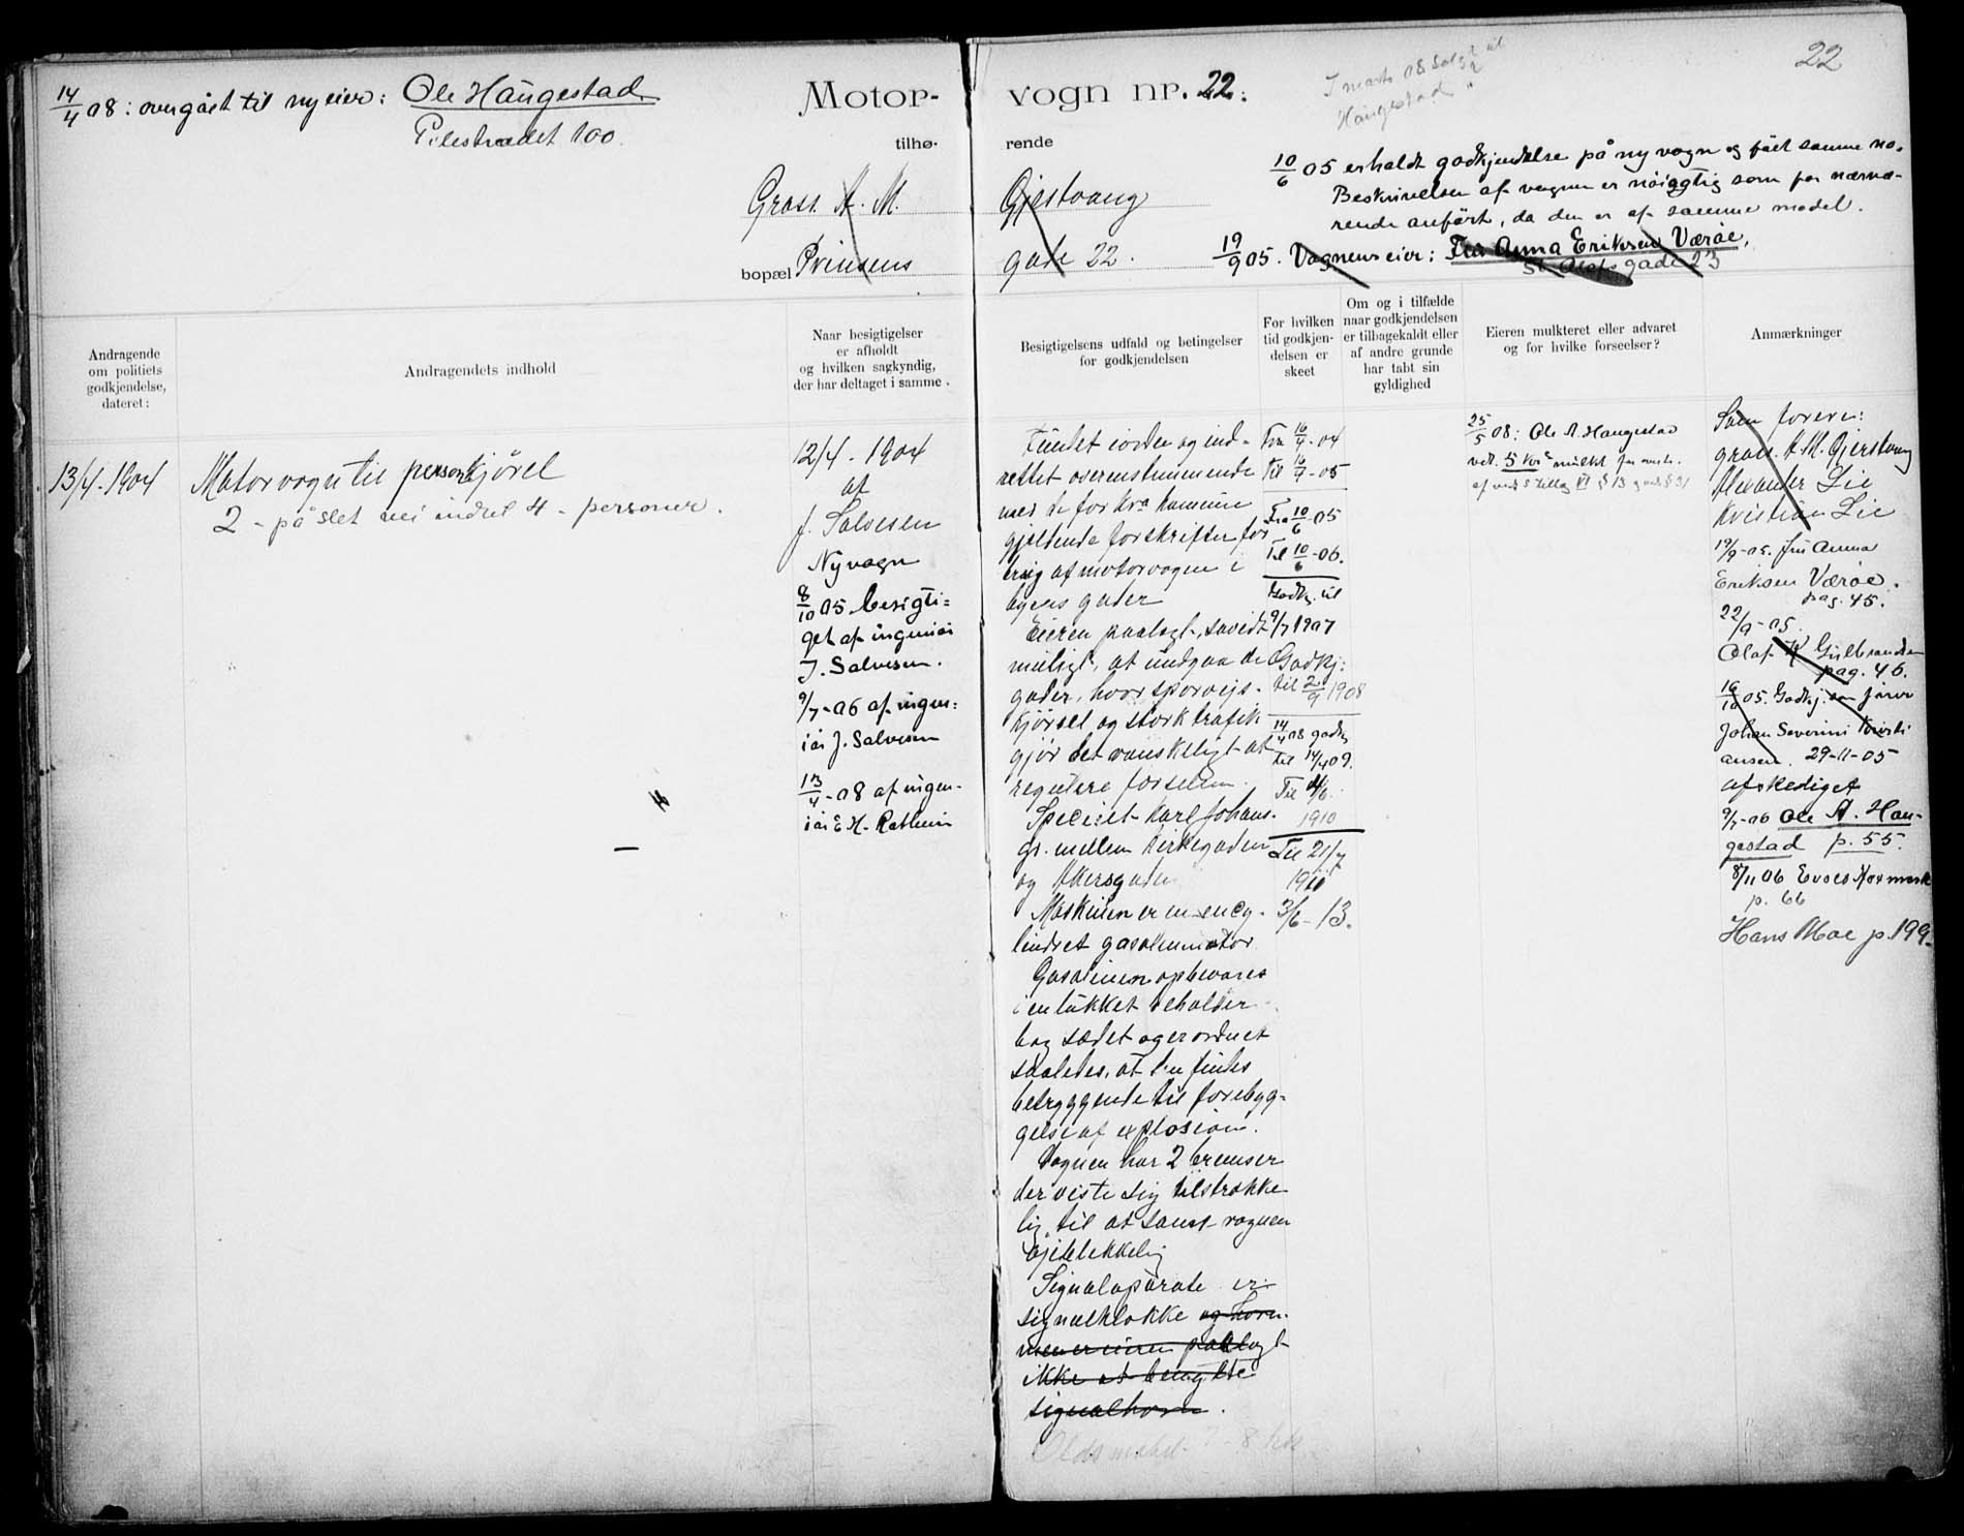 14/4 08: overgået til ny eier: Ole Haugestad
Pilestrædet 100.
Motor-vogn nr. 22.
22
I marts 08 Solgt til
Haugestad
tilhø-rende
Gross. A. M. Gjestvang
bopæl Prinsens gade 22.
10/6 05 erholdt godkjendelse på ny vogn og fået samme no.
Beskrivelsen af vognen er nöiagtig som for nærvæ-
rende anført, da den er af samme model.
19/9 05. Vognens eier: Frk Anna Eriksen Værøe,
St. Olafs gade 23
Andragende
om politiets
godkjendelse,
dateret:
Andragendets indhold
Naar besigtigelser
er afholdt
og hvilken sagkyndig,
der har deltaget i samme.
Besigtigelsens udfald og betingelser
for godkjendelsen
For hvilken
tid godkjen-
delsen er
skeet
Om og i tilfælde
naar godkjendelsen
er tilbagekaldt eller
af andre grunde
har tabt sin
gyldighed
Eieren mulkteret eller advaret
og for hvilke forseelser?
Anmærkninger
13/4-1904
Motorvogn til personkjörel
2 - på slet vei indtil 4 - personer.
12/4-1904
af
J. Salvesen
Ny vogn
8/10 05 besigti=
get af ingeniör
J. Salvesen.
9/7-06 af ingen=
iör J. Salvesen
13/4-08 af ingen-
iör E. H.
Fundet iorden og ind-
rettet overensstemmende
med de for Kra kommune
gjældende forskrifter for
brug af motorvogne i
byens gader
Eieren paalagt, saavidt
muligt, at undgaa de
gader, hvor sporveis-
kjørsel og sterk trafik
gjør det vanskeligt at
regulere farten.
Specielt Karl Johans-
gt. mellem Kirkegaden
og Akersgaden
Maskinen er en ency-
lindret gasolinmotor
Gasolinen opbevares
i en lukket beholder
bag sædet og er ordnet
saaledes, at den findes
betryggende til forebyg-
gelse af explosion.
Vognen har 2 bremser
der viste sig tilstrække
lig til at stanse vognen
øjeblikkelig
Signalaparate er
signalklokke og horn.
men er eieren paalagt
ikke at benytte
signalhorn.
Oldsmobil 7-8 hk
Fra 16/4-04
til 16/4-05
Fra 10/6-05
Til 10/6-06.
Godkj. til
9/7 1907
Godkj:
til 2/9 1908
14/4 08 godkj
til 14/4 09.
Til 4/6
1910
Til 21/7
1911
3/6-13.
25/5 08: Ole A. Haugestad
ved. 5 Kr mulkt for overtr.
Som förere:
gross. A. M. Gjerstvang
Alexander Lie
Kristian Lie
19/9-05. frk Anna
Eriksen Værøe.
pag. 45.
22/9-05.
Olaf Gulbrandsen
pag. 46.
16/10 05. Godkj. som förer
Johan Severini Kristi
ansen. 29-11-05
afskediget
9/7-06 Ole A. Hau-
gestad p. 55.
8/11 06
p. 66
Hans Moe p. 199.